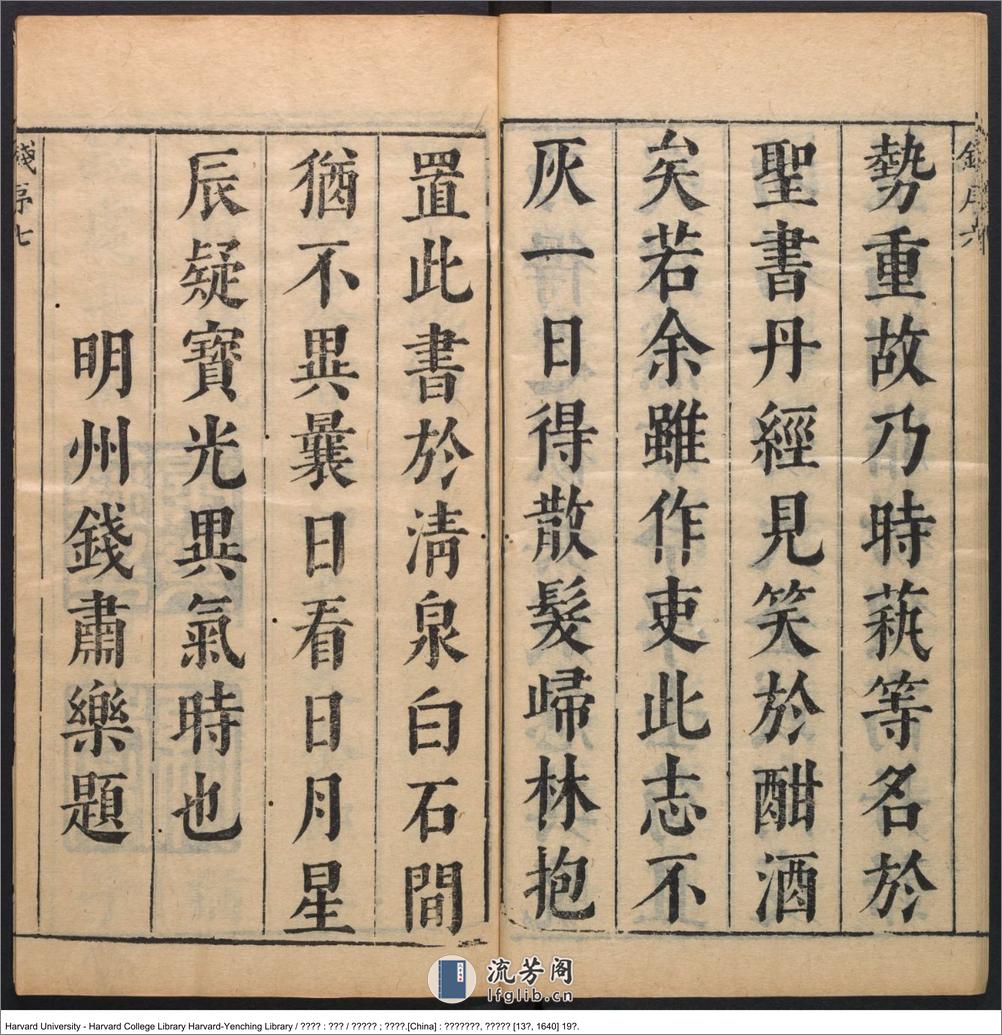 錢序六
勢重故乃時藝等名於
聖書丹經見笑於酣酒
矣若余雖作吏此志不
灰一日得散髮歸林抱
置此書於淸泉白石間
猶不異曩日看日月星
辰疑寶光異氣時也
明州錢肅樂題
錢序七
流芳阁
lfglib.cn
Harvard University - Harvard College Library Harvard-Yenching Library / ???? : ??? / ????? ; ????.[China] : ???????, ????? [13?, 1640] 19?.